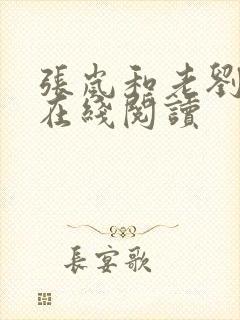 張嵐和老劉
在綫閱讀
長宴歌